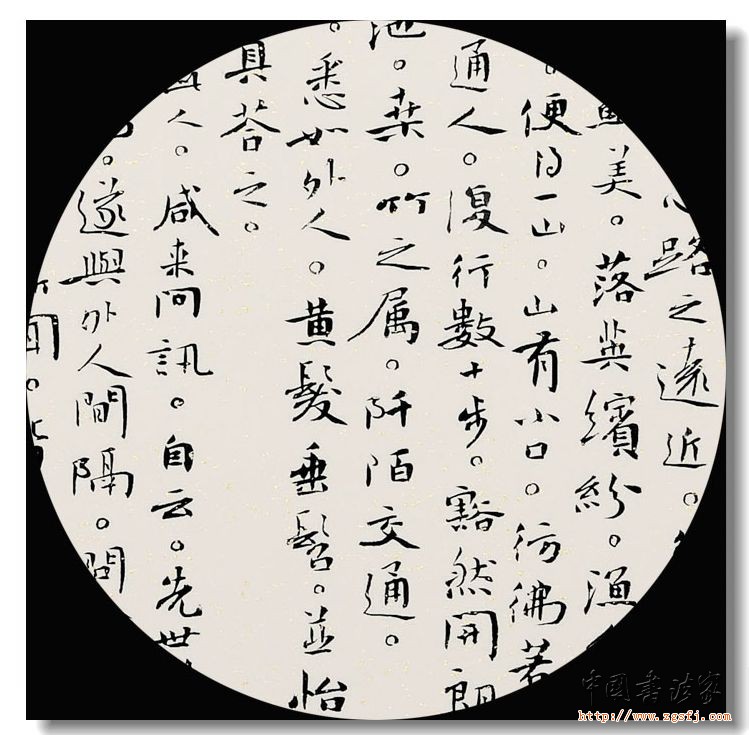 路之遠近。
美。落英繽紛。漁
。便得一山。山有小口。彷彿若
通人。復行數十步。豁然開朗
池。桑。竹之属。阡陌交通。
。悉如外人。黄髮垂髫。並怡
具荅之。
人。咸来問訊。自云。先世
。遂與外人間隔。問
聞。
中国書法家
http://www.zgsfj.com